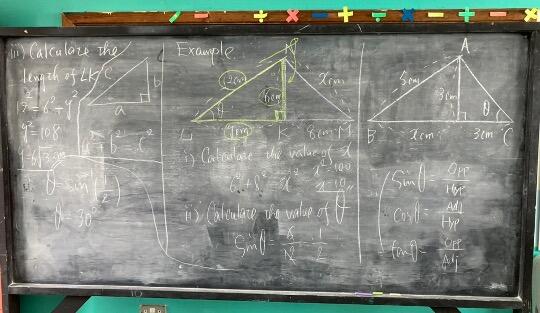 iii) Calculate the
length of LK
12² = 6² + y²
y² = 108
y = 6√3 cm
c
b
a
a² + b² = c²
θ = sin⁻¹(1/2)
θ = 30°
Example
N
12cm
6cm
x cm
L
K
8cm
M
i) Calculate the value of x
6² + 8² = x²
x² = 100
x = 10
ii) Calculate the value of θ
Sin θ = 6/12 = 1/2
A
5cm
3cm
θ
B
x cm
3cm
C
Sin θ = Opp/Hyp
cos θ = Adj/Hyp
tan θ = Opp/Adj